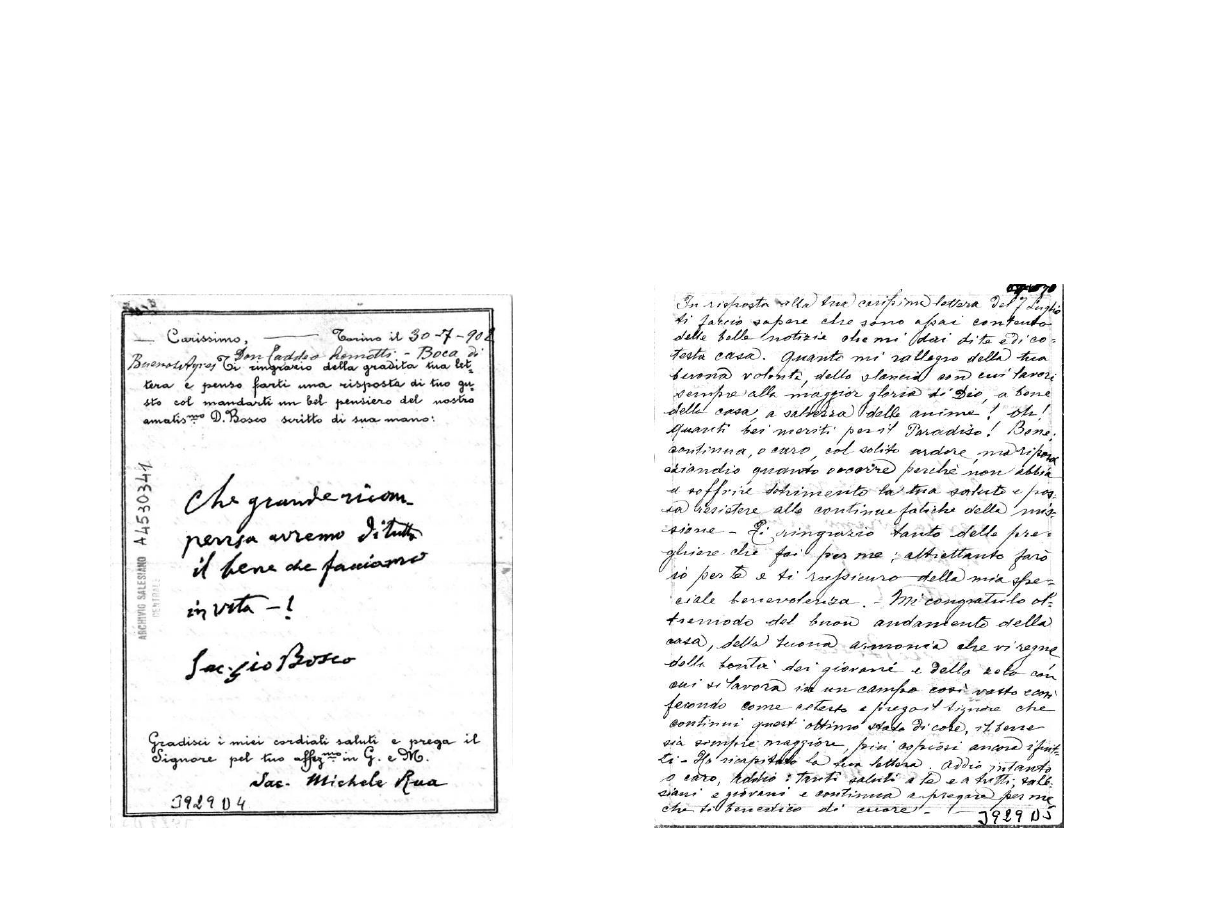 Carissimo, Torino il 30-7-908
Don Taddeo Remotti - Boca di
Buenos Ayres Ti ringrazio della gradita tua let-
tera e penso farti una risposta di tuo gu-
sto col mandarti un bel pensiero del nostro
amatis.mo D. Bosco scritto di sua mano:
Che grande ricom-
pensa avremo di tutto
il bene che facciamo
in vita - !
Sac. Gio Bosco
Gradisci i miei cordiali saluti e prega il
Signore pel tuo affez.mo in G. e M.
Sac. Michele Rua
J929 D4
ARCHIVIO SALESIANO
CENTRALE
A4530341
In risposta alla tua carissima lettera del 7 Luglio
ti faccio sapere che sono assai contento
delle belle notizie che mi dai di te e di co-
testa casa. Quanto mi rallegro della tua
buona volontà, dello slancio con cui lavori
sempre alla maggior gloria di Dio, a bene
della casa, a salvezza delle anime! Oh!
Quanti bei meriti per il Paradiso! Bene,
continua, o caro, col solito ardore, ma riposa
eziandio quanto occorre perchè non abbia
a soffrire detrimento la tua salute e pos-
sa resistere alle continue fatiche della mis-
sione - Ti ringrazio tanto delle pre-
ghiere che fai per me; altrettanto farò
io per te e ti assicuro della mia spe-
ciale benevolenza. - Mi congratulo ol-
tremodo del buon andamento della
casa, della buona armonia che vi regna
della bontà dei giovani e dello zelo con
cui si lavora in un campo così vasto e così
fecondo come cotesto e prego il Signore che
continui quest'ottimo stato di cose, il bene
sia sempre maggiore, più copiosi ancora i frut-
ti - Ho ricapitato la tua lettera. Addio intanto
o caro, Addio: tanti saluti a te e a tutti, sale-
siani e giovani e continua a pregare per me
che ti benedico di cuore -
J929 D5